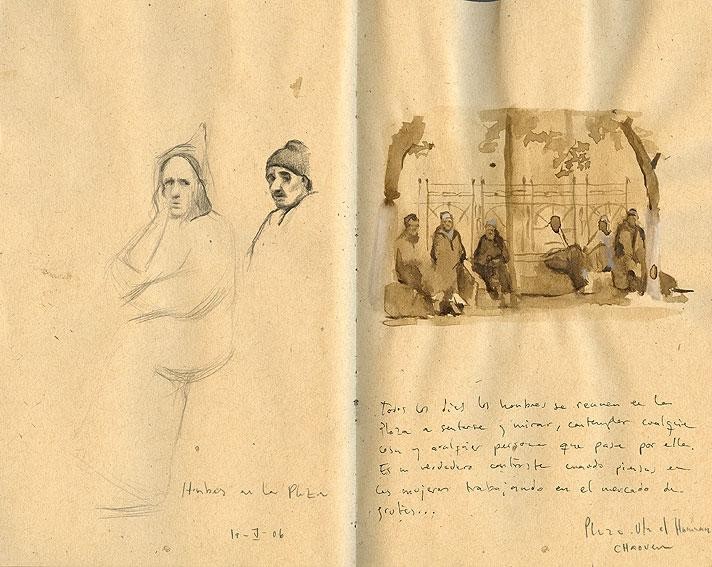 Hombres en la Plaza
10-I-06
Todos los días los hombres se reunen en la
Plaza a sentarse y mirar, contemplar cualquier
cosa y cualquier persona que pase por ella.
Es un verdadero contraste cuando piensas en
las mujeres trabajando en el mercado de
frutas...
Plaza Uta el Hamman
CHAOUEN